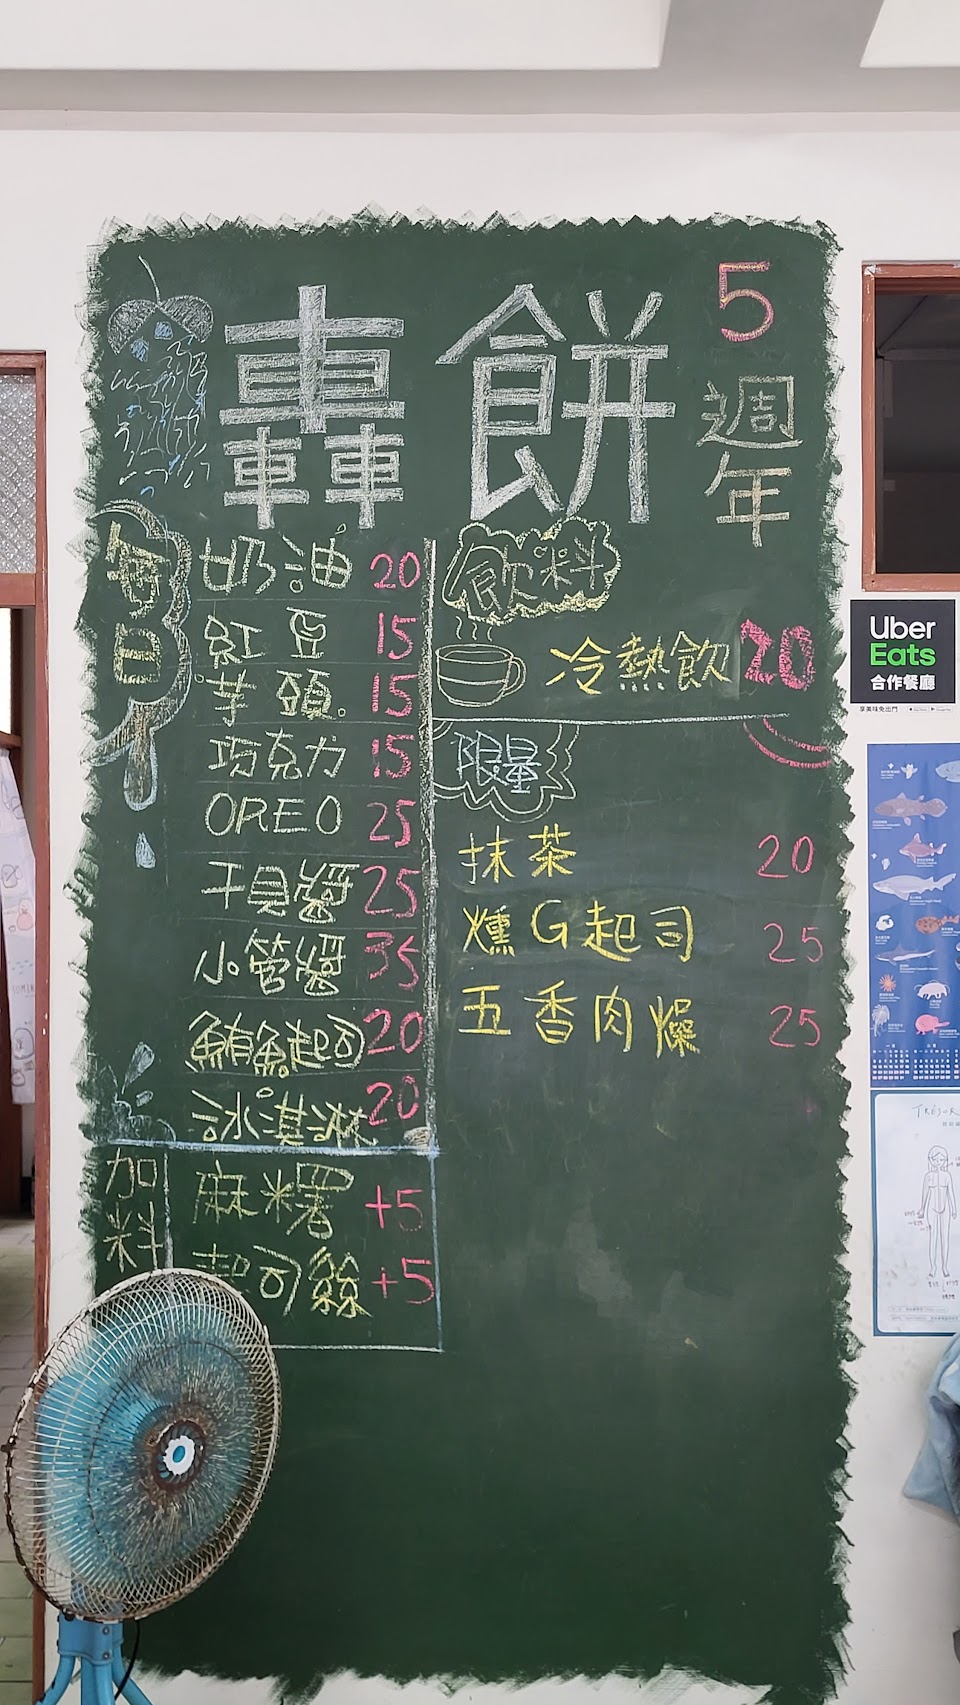 轟餅
5
週年
每日
奶油 20
紅豆 15
芋頭 15
巧克力 15
OREO 25
干貝醬 25
小管醬 35
鮪魚起司 20
冰淇淋 20
加料
麻糬 +5
起司絲 +5
飲料
冷熱飲 20
限量
抹茶 20
燻G起司 25
五香肉燥 25
Uber
Eats
合作餐廳
享美味免出門
TRÉSOR